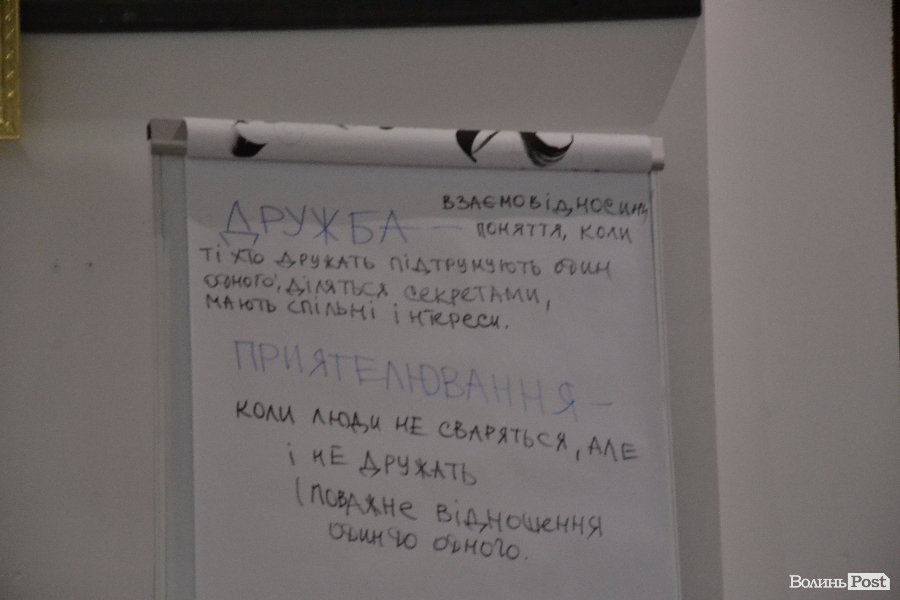 ВЗАЄМОВІДНОСИНИ,
ДРУЖБА — ПОНЯТТЯ, КОЛИ
ТІ ХТО ДРУЖАТЬ ПІДТРИМУЮТЬ ОДИН
ОДНОГО, ДІЛЯТЬСЯ СЕКРЕТАМИ,
МАЮТЬ СПІЛЬНІ ІНТЕРЕСИ.
ПРИЯТЕЛЮВАННЯ —
КОЛИ ЛЮДИ НЕ СВАРЯТЬСЯ, АЛЕ
І НЕ ДРУЖАТЬ
(ПОВАЖНЕ ВІДНОШЕННЯ
ОДИН ДО ОДНОГО.
Волинь Post